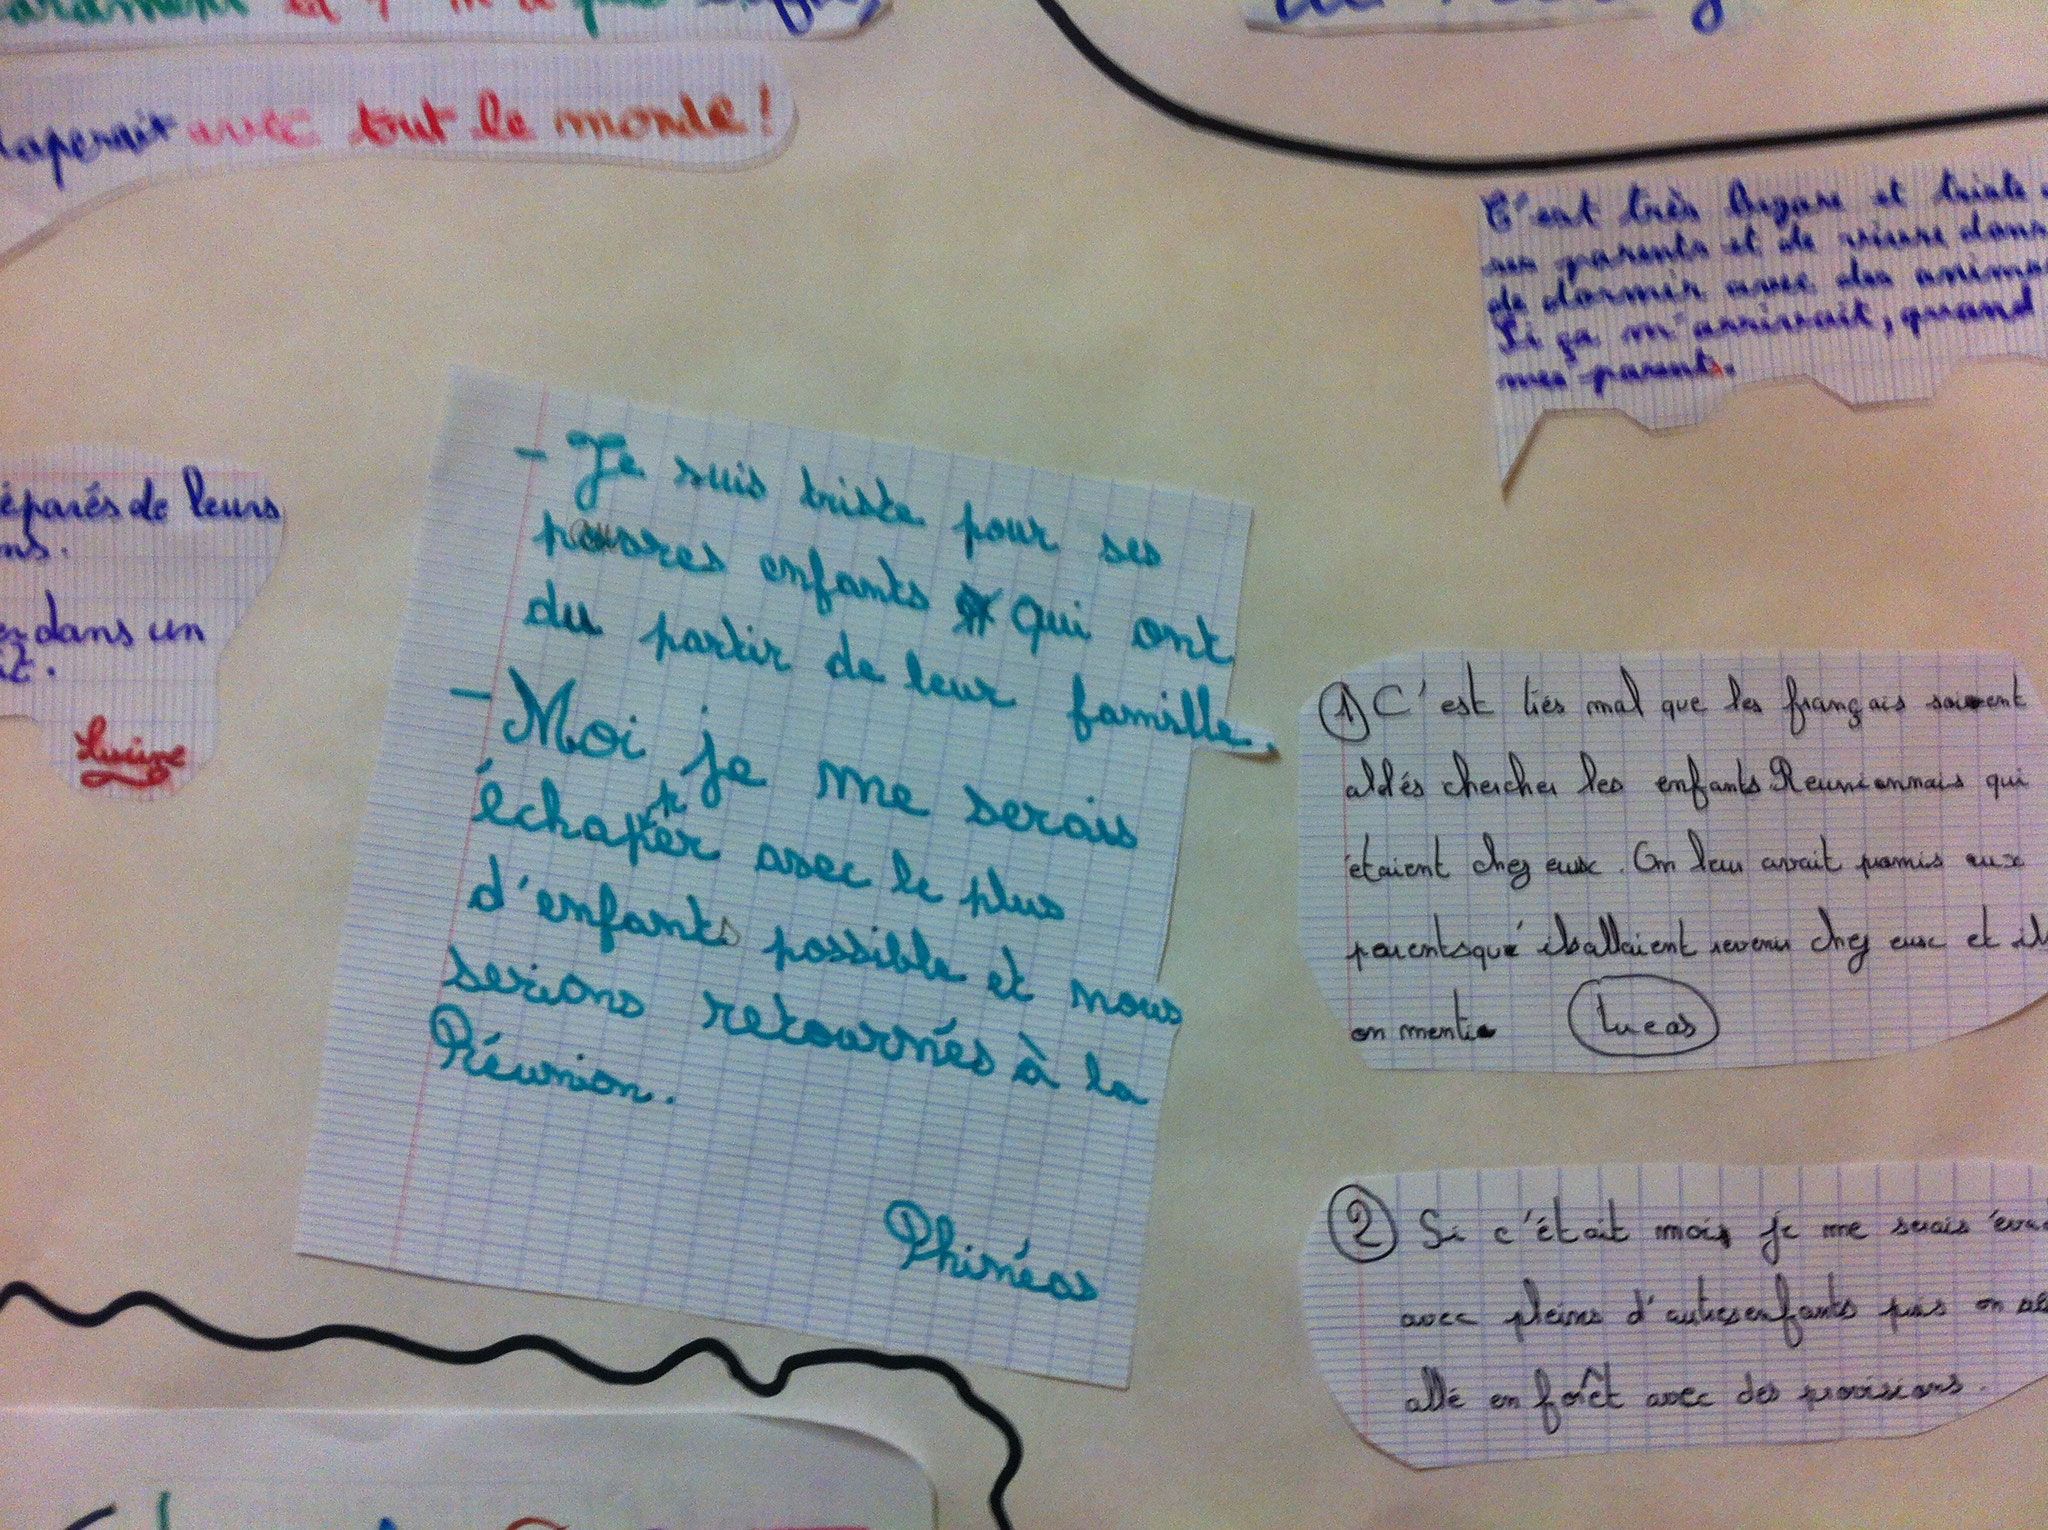 avec tout le monde!
C'est très bizare et triste
ses parents et de vivre dans
de dormir avec des anima
Si ça m'arrivait, quand
mes parents.
éparés de leurs
ns.
dans un
it.
- Je suis triste pour ses
pauvres enfants qui ont
du partir de leur famille.
- Moi je me serais
échapper avec le plus
d'enfants possible et nous
serions retournés à la
Réunion.
Phinéas
1) C'est très mal que les français soient
allés chercher les enfants Reunionnais qui
étaient chez eux. On leur avait promis aux
parents que ils allaient revenir chez eux et il
on mentie
Lucas
2 Si c'était moi, je me serais éva
avec pleins d'autres enfants puis on se
allé en forêt avec des provisions.